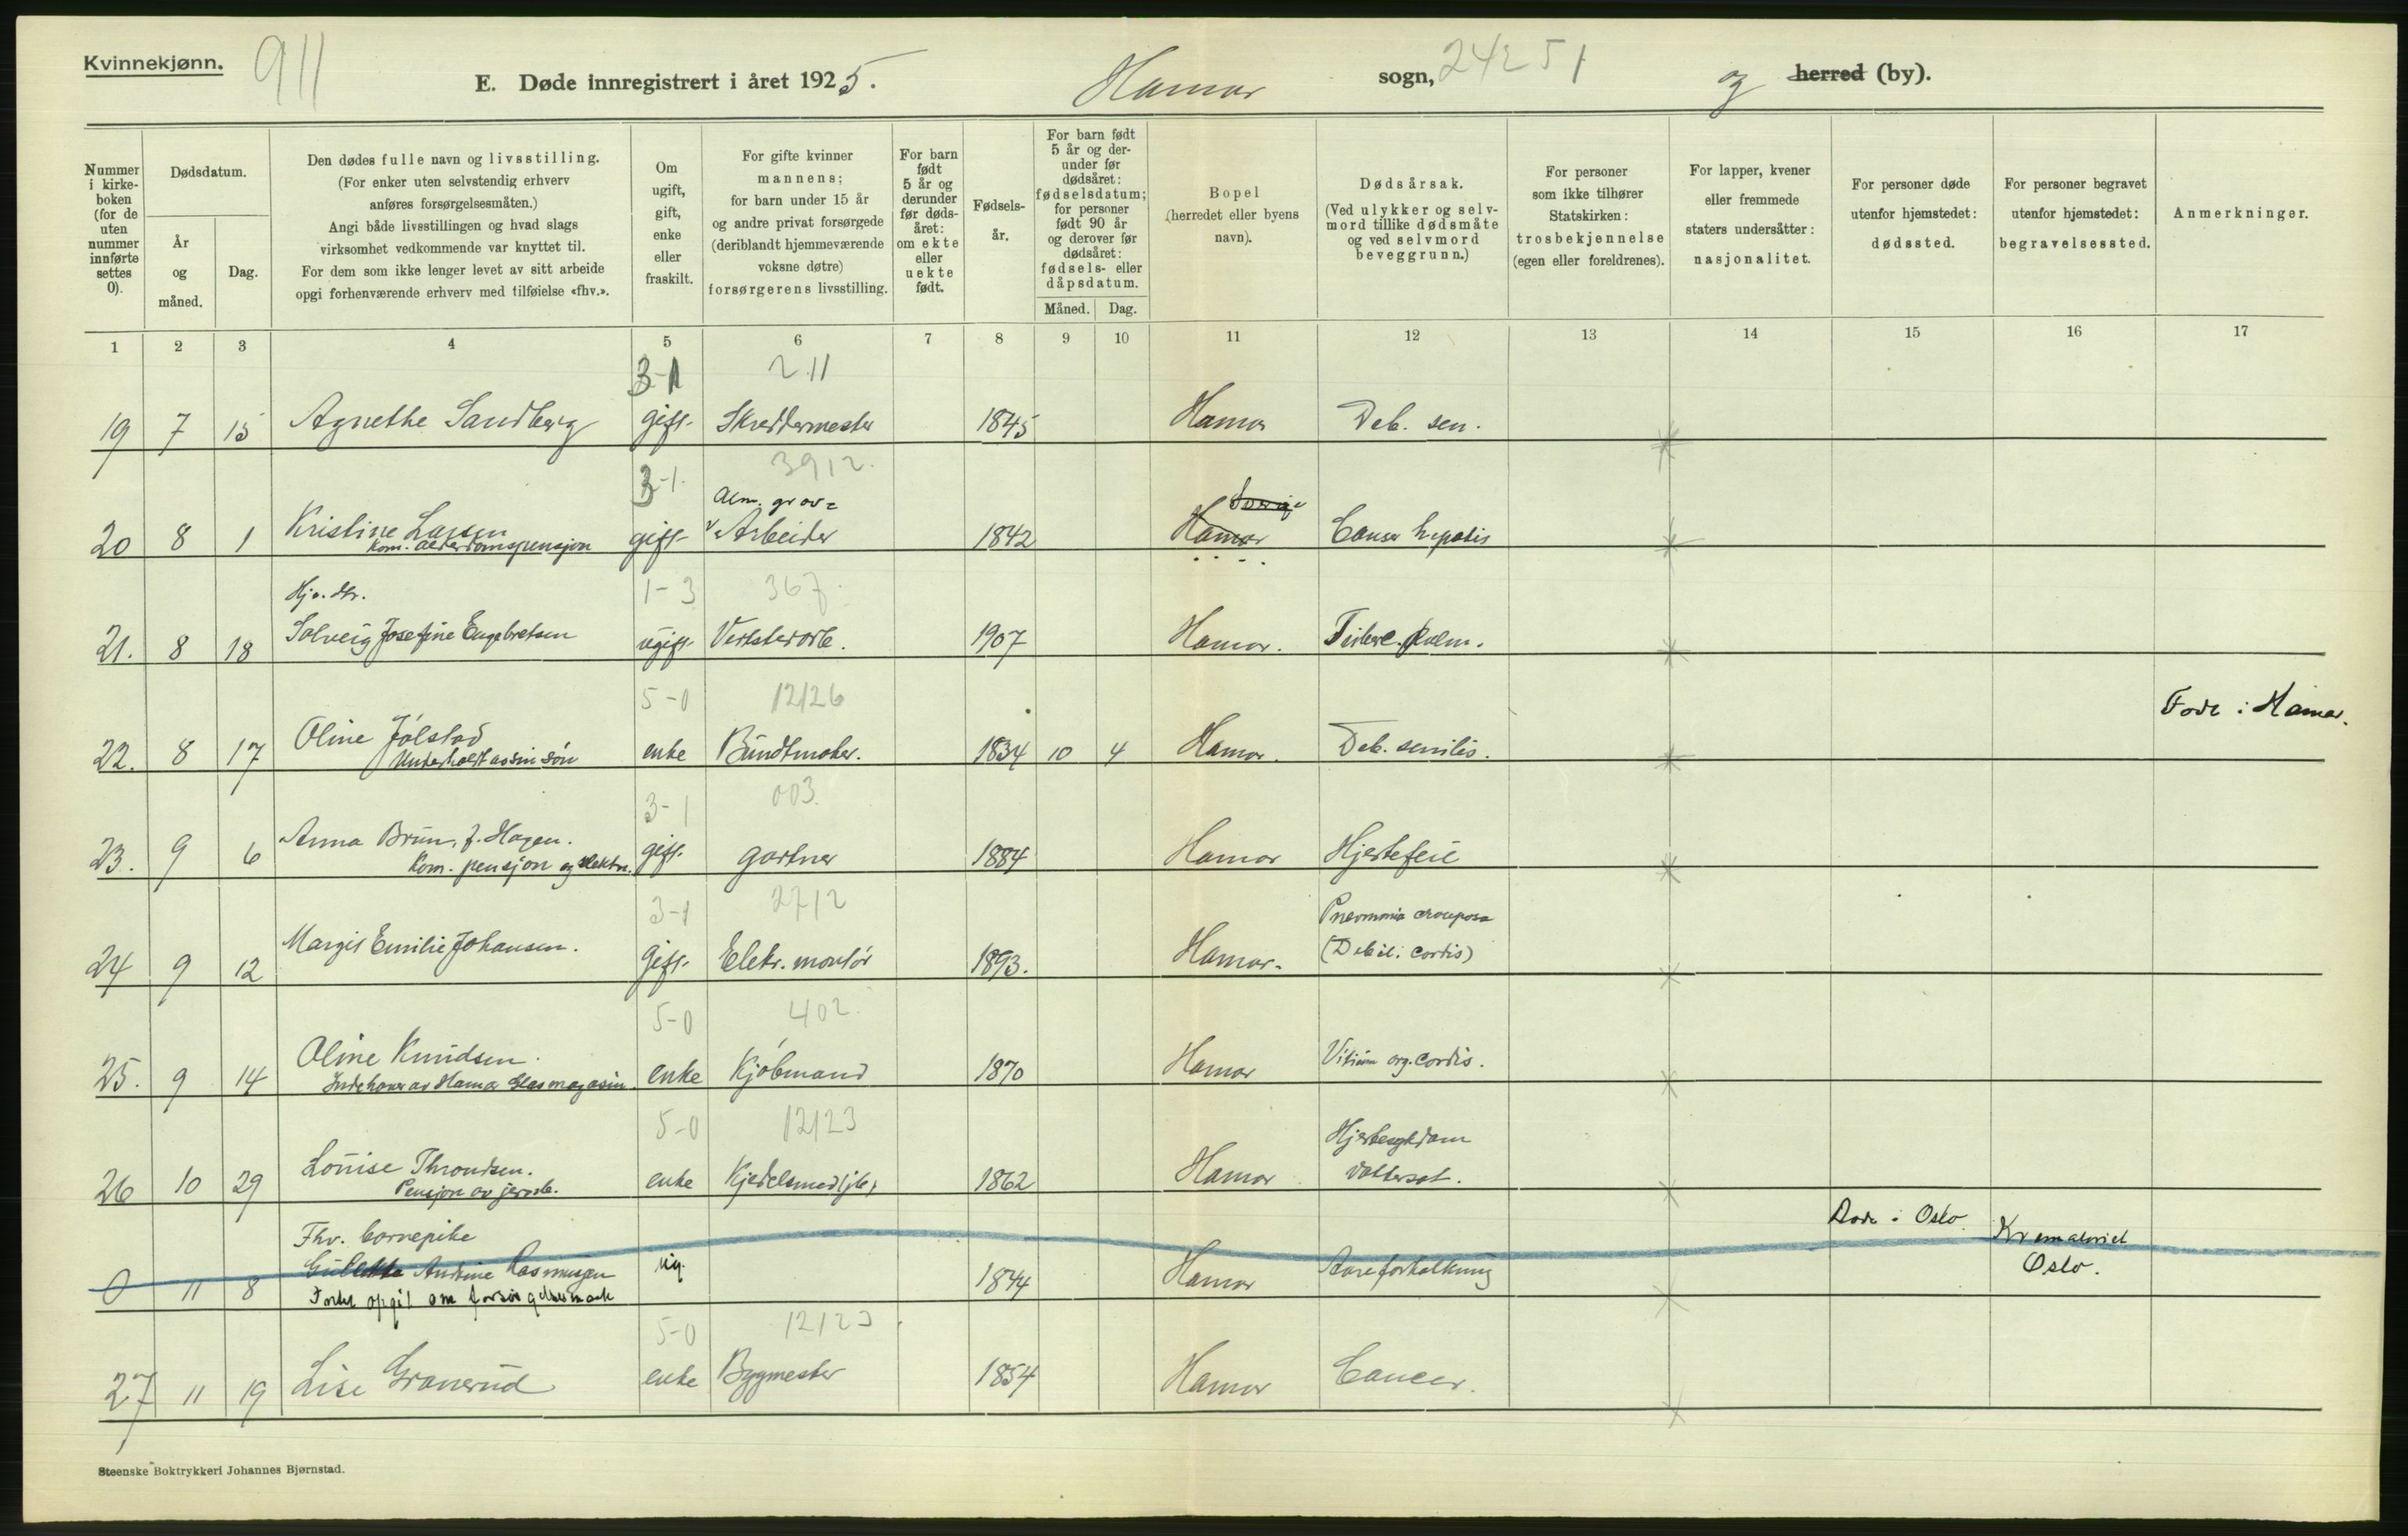 Kvinnekjønn.
911
E. Døde innregistrert i året 1925.
Hamar sogn, 24251 og herred (by).
Nummer i kirkeboken (for de uten nummer innførte settes 0).
Dødsdatum.
År og måned.
Dag.
Den dødes fulle navn og livsstilling.
(For enker uten selvstendig erhverv
anføres forsørgelsesmåten.)
Angi både livsstillingen og hvad slags
virksomhet vedkommende var knyttet til.
For dem som ikke lenger levet av sitt arbeide
opgi forhenværende erhverv med tilføielse «fhv.».
Om ugift, gift, enke eller fraskilt.
For gifte kvinner
mannens;
for barn under 15 år
og andre privat forsørgede
(deriblandt hjemmeværende
voksne døtre)
forsørgerens livsstilling.
For barn født 5 år og derunder før dødsåret: om ekte eller uekte født.
Fødselsår.
For barn født 5 år og derunder før dødsåret: fødselsdatum; for personer født 90 år og derover før dødsåret: fødsels- eller dåpsdatum.
Måned. Dag.
Bopel
(herredet eller byens
navn).
Dødsårsak.
(Ved ulykker og selvmord tillike dødsmåte
og ved selvmord
beveggrunn.)
For personer
som ikke tilhører
Statskirken:
trosbekjennelse
(egen eller foreldrenes).
For lapper, kvener
eller fremmede
staters undersåtter:
nasjonalitet.
For personer døde
utenfor hjemstedet:
dødssted.
For personer begravet
utenfor hjemstedet:
begravelsessted.
Anmerkninger.
1 2 3 4 5 6 7 8 9 10 11 12 13 14 15 16 17
3-1 211
19 7 15 Agnethe Sandberg gift Skreddermester 1845 Hamar Deb. sen.
3-1. 3912.
Alm. grov=
20 8 1 Kristine Larsen gift Arbeider 1842 Hamar Cancer hepatis
Kom. alderdomspensjon
1-3 367
Hjv. dtr.
21. 8 18 Solveig Josefine Engebretsen ugift Verkstedarb. 1907 Hamar. Tuberc. pulm.
5-0 12126
Født i Hamar.
22. 8 17 Oline Jølstad enke Bundtmaker. 1834 10 4 Hamar. Deb. senilis.
Underholdt av sin søn
3-1 003.
23. 9 6 Anna Brun, f. Hagen. gift. gartner 1884 Hamar Hjertefeil
Kom. pensjon og
3-1 2712
Pneumonia crouposa
24 9 12 Margit Emilie Johansen. gift Elektr. montør 1893. Hamar. (Debil. cordis)
5-0 402
25. 9 14 Oline Knudsen. enke Kjøbmand 1870 Hamar Vitium org. cordis.
Indehaver av Hamar Glasmagasin
5-0 12123
Hjertesykdom
26 10 29 Louise Throndsen. enke Kjedelsmed (jb) 1862 Hamar Vattersot.
Pensjon av jernb.
Fhv. barnepike
Døde i Oslo. Krematoriet
0 11 8 Andrine Rasmussen ug. 1844 Hamar Aareforkalkning Oslo.
opgit om forsørgelsesmaate
5-0 12123
27 11 19 Lise Granerud enke Bygmester 1854 Hamar Cancer.
Steenske Boktrykkeri Johannes Bjørnstad.